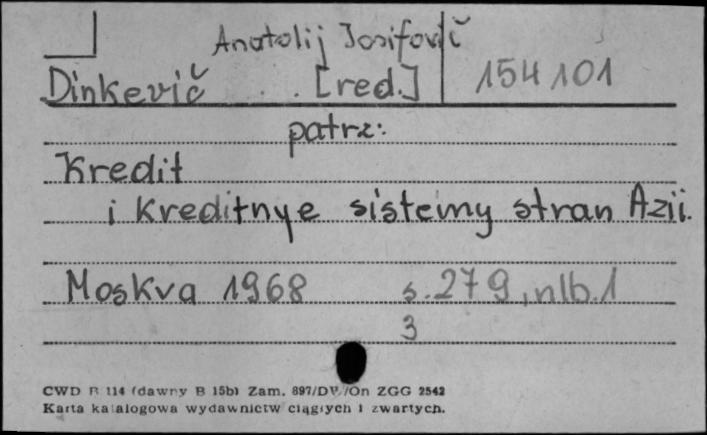 Anatolij Josifovič
Dinkevič . . [red.] 154101
patrz:
Kredit
i kreditnye sistemy stran Azii.
Moskva 1968 s. 279, nlb. 1
3
CWD B 114 (dawny B 15b) Zam. 897/DW/On ZGG 2542
Karta katalogowa wydawnictw ciągłych i zwartych.